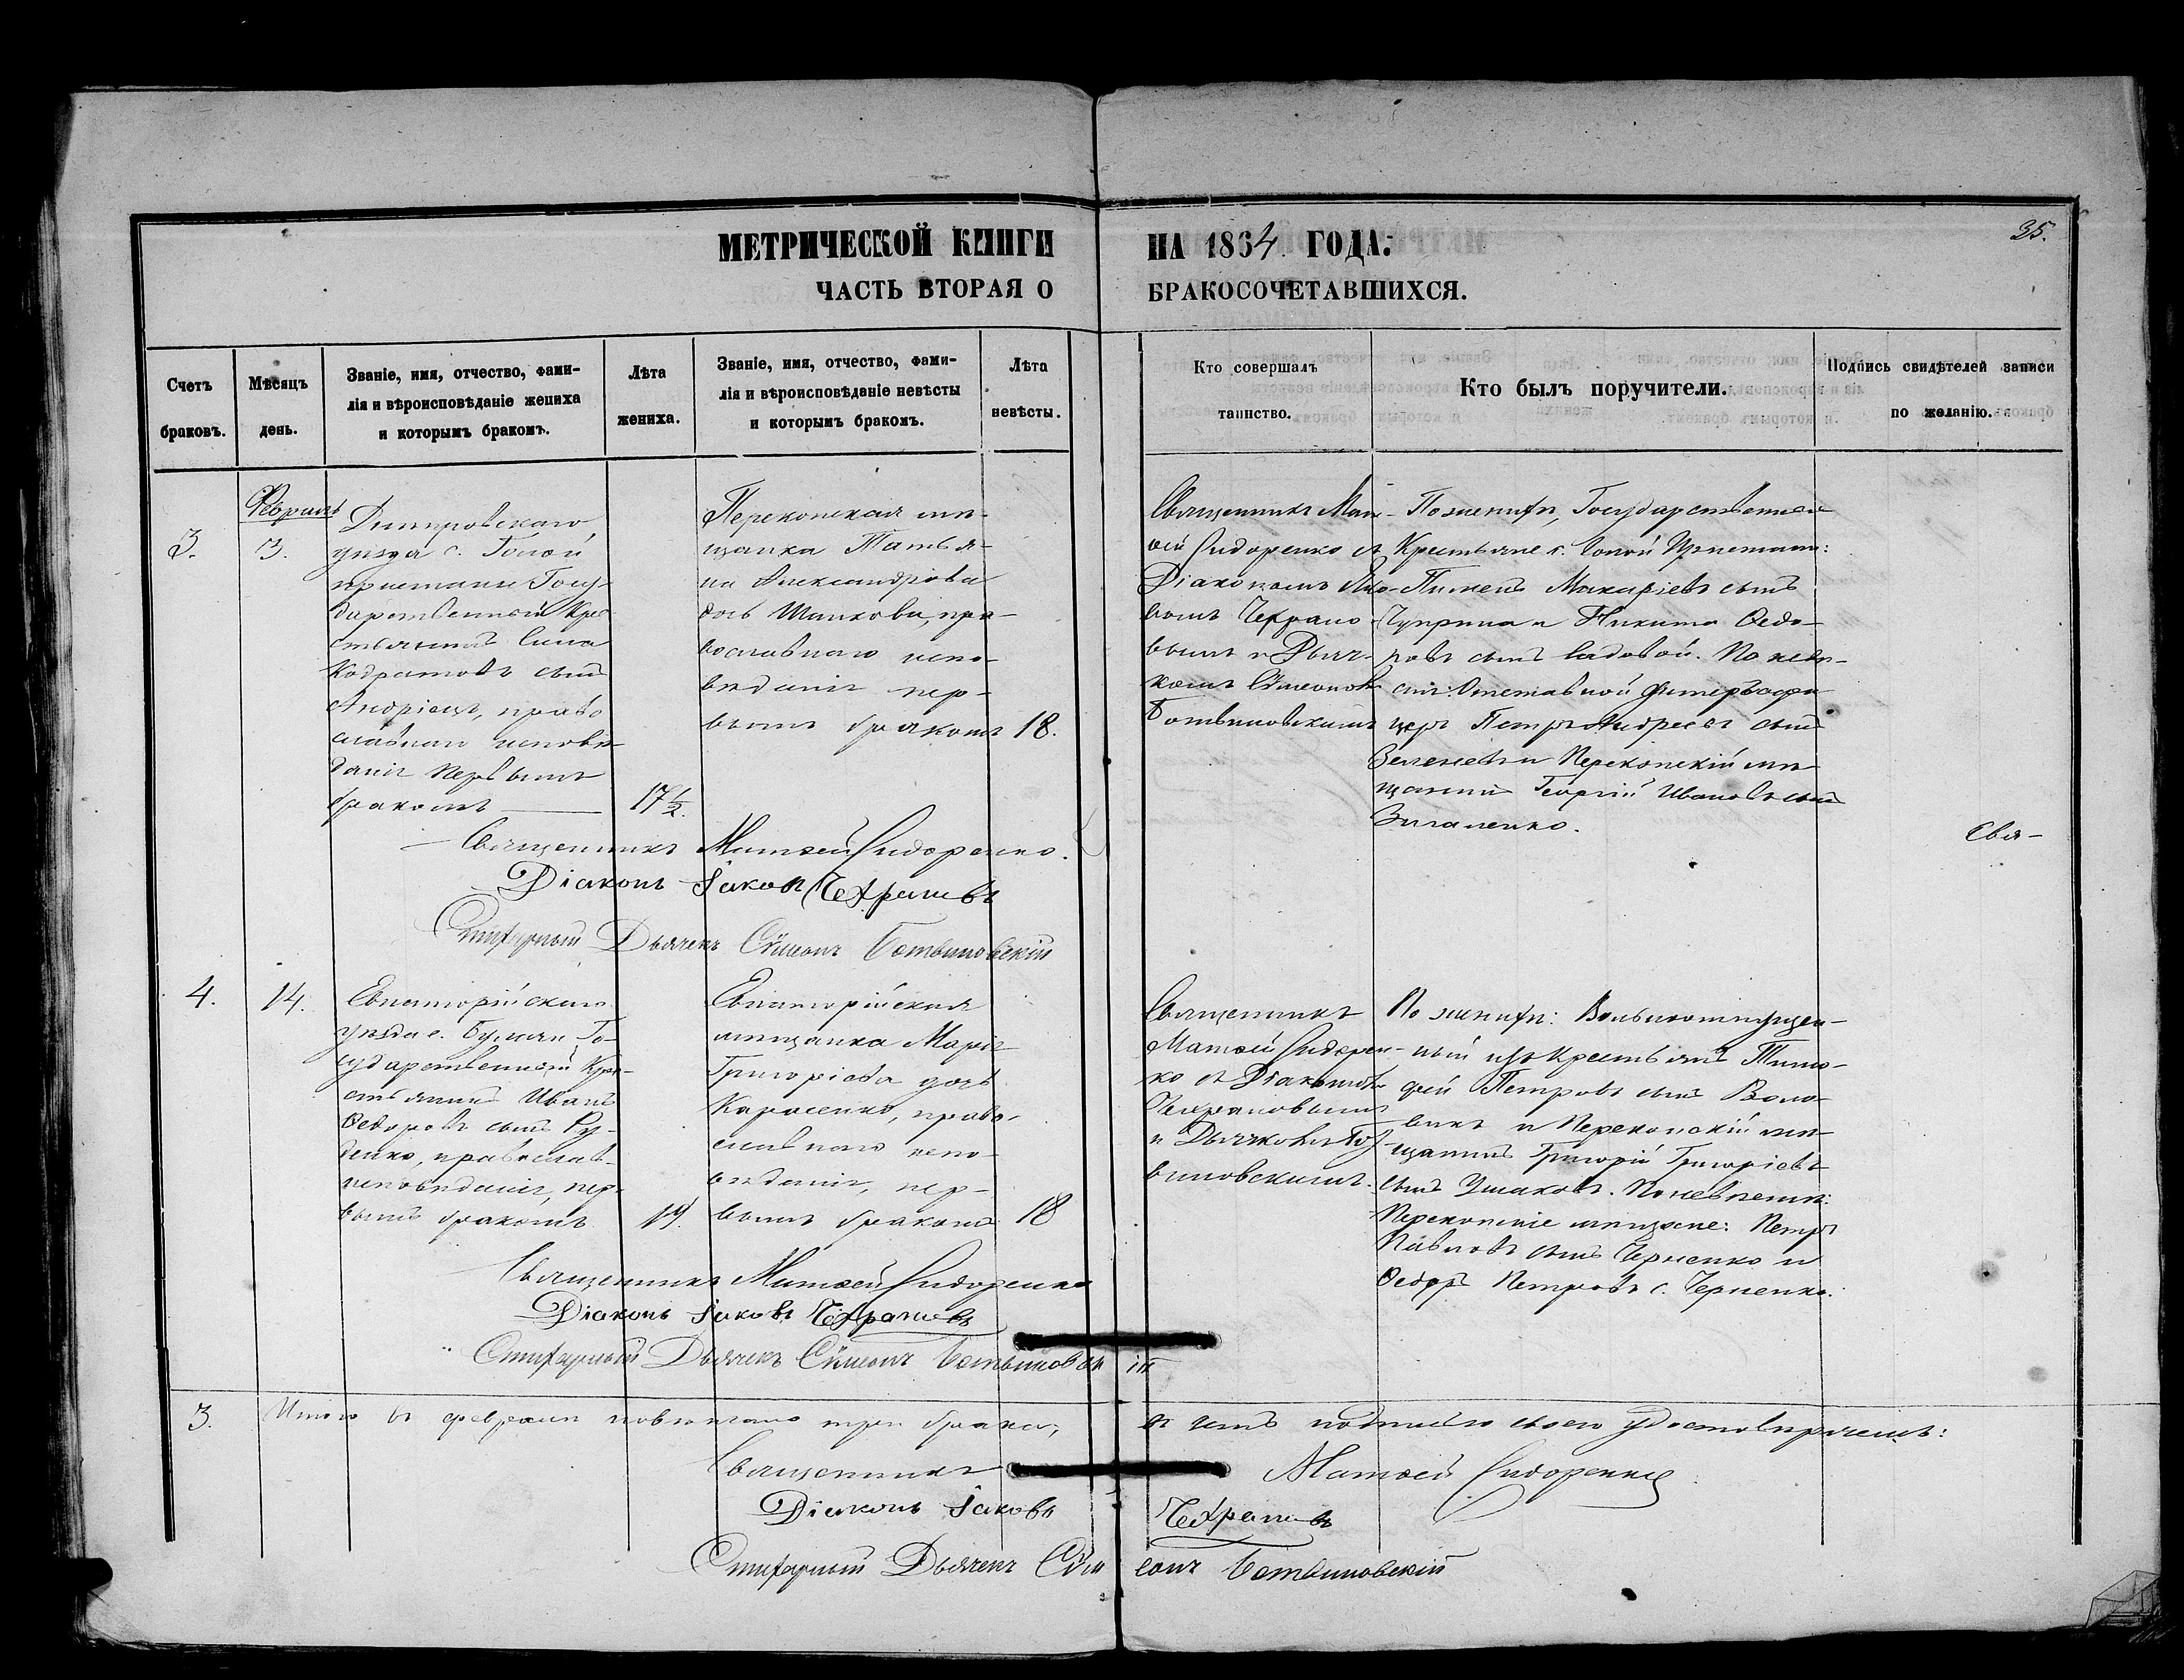 35.
МЕТРИЧЕСКОЙ КНИГИ НА 1864. ГОДА:
ЧАСТЬ ВТОРАЯ О БРАКОСОЧЕТАВШИХСЯ.
Счетъ
браковъ.
Мѣсяцъ
день.
Званіе, имя, отчество, фами-
лія и вѣроисповѣданіе жениха
и которымъ бракомъ.
Лѣта
жениха.
Званіе, имя, отчество, фами-
лія и вѣроисповѣданіе невѣсты
и которымъ бракомъ.
Лѣта
невѣсты.
Кто совершалъ
таинство.
Кто былъ поручители.
Подпись свидѣтелей записи
по желанію.
3.
Февраль
3.
Днѣпровскаго
уѣзда с. Голой
пристани Госу-
дарственный Кре-
стьянинъ Сила
Кодратовъ сынъ
Андріецъ, право
славнаго исповѣ-
данія первымъ
бракомъ
17½.
Перекопская мѣ-
щанка Татья-
на Александрова
дочь Шапкова, пра-
вославнаго испо-
вѣданія пер-
вымъ бракомъ
18.
Священникъ Мат-
ѳей Сидоренко съ
Діакономъ Іако-
вомъ Чехрано-
вымъ и Дьяч-
комъ Сѵмеономъ
Ботвиновскимъ
По женихѣ, Государственные
Крестьяне с. Голой Пристани:
Пименъ Макаріевъ сынъ
Чуприна и Никита Ѳедо-
ровъ сынъ Садовой. По невѣ-
стѣ: Отставной Унтеръ офи
церъ Петръ Андреевъ сынъ
и Перекопскій мѣ
щанинъ Георгій Ивановъ сынъ
Зигаленко.
Свя-
Священникъ Матѳей Сидоренко.
Діаконъ Іаковъ Чехрановъ
Стихарный Дьячекъ Сѵмеонъ Ботвиновскій
4.
14.
Евпаторійскаго
уѣзда с. Го-
сударственный Кре-
стьянинъ Иванъ
Ѳедоровъ сынъ Ру-
денко, православ.
исповѣданія, пер-
вымъ бракомъ
19.
Евпаторійская
мѣщанка Марія
Григоріева дочь
Карасенко, право-
славнаго испо-
вѣданія, пер-
вымъ бракомъ
18
Священникъ
Матѳей Сидорен-
ко съ Діакономъ
Чехрановымъ
и Дьячкомъ Бот-
виновскимъ.
По женихѣ: Вольноотпущен-
ный изъ крестьянъ Тимо-
фей Петровъ сынъ Воло-
викъ и Перекопскій мѣ-
щанинъ Григорій Григоріевъ
сынъ Ушаковъ. По невѣстѣ:
Перекопскіе мѣщане: Петръ
Павловъ сынъ Черненко и
Ѳедоръ Петровъ с. Черненко.
Священникъ Матѳей Сидоренко
Діаконъ Іаковъ Чехрановъ
Стихарный Дьячекъ Сѵмеонъ Ботвиновскій
3. Итого въ февралѣ повѣнчано три брака, въ чемъ подписью своею удостовѣряемъ:
Священникъ Матѳей Сидоренко
Діаконъ Іаковъ Чехрановъ
Стихарный Дьячекъ Сѵмеонъ Ботвиновскій